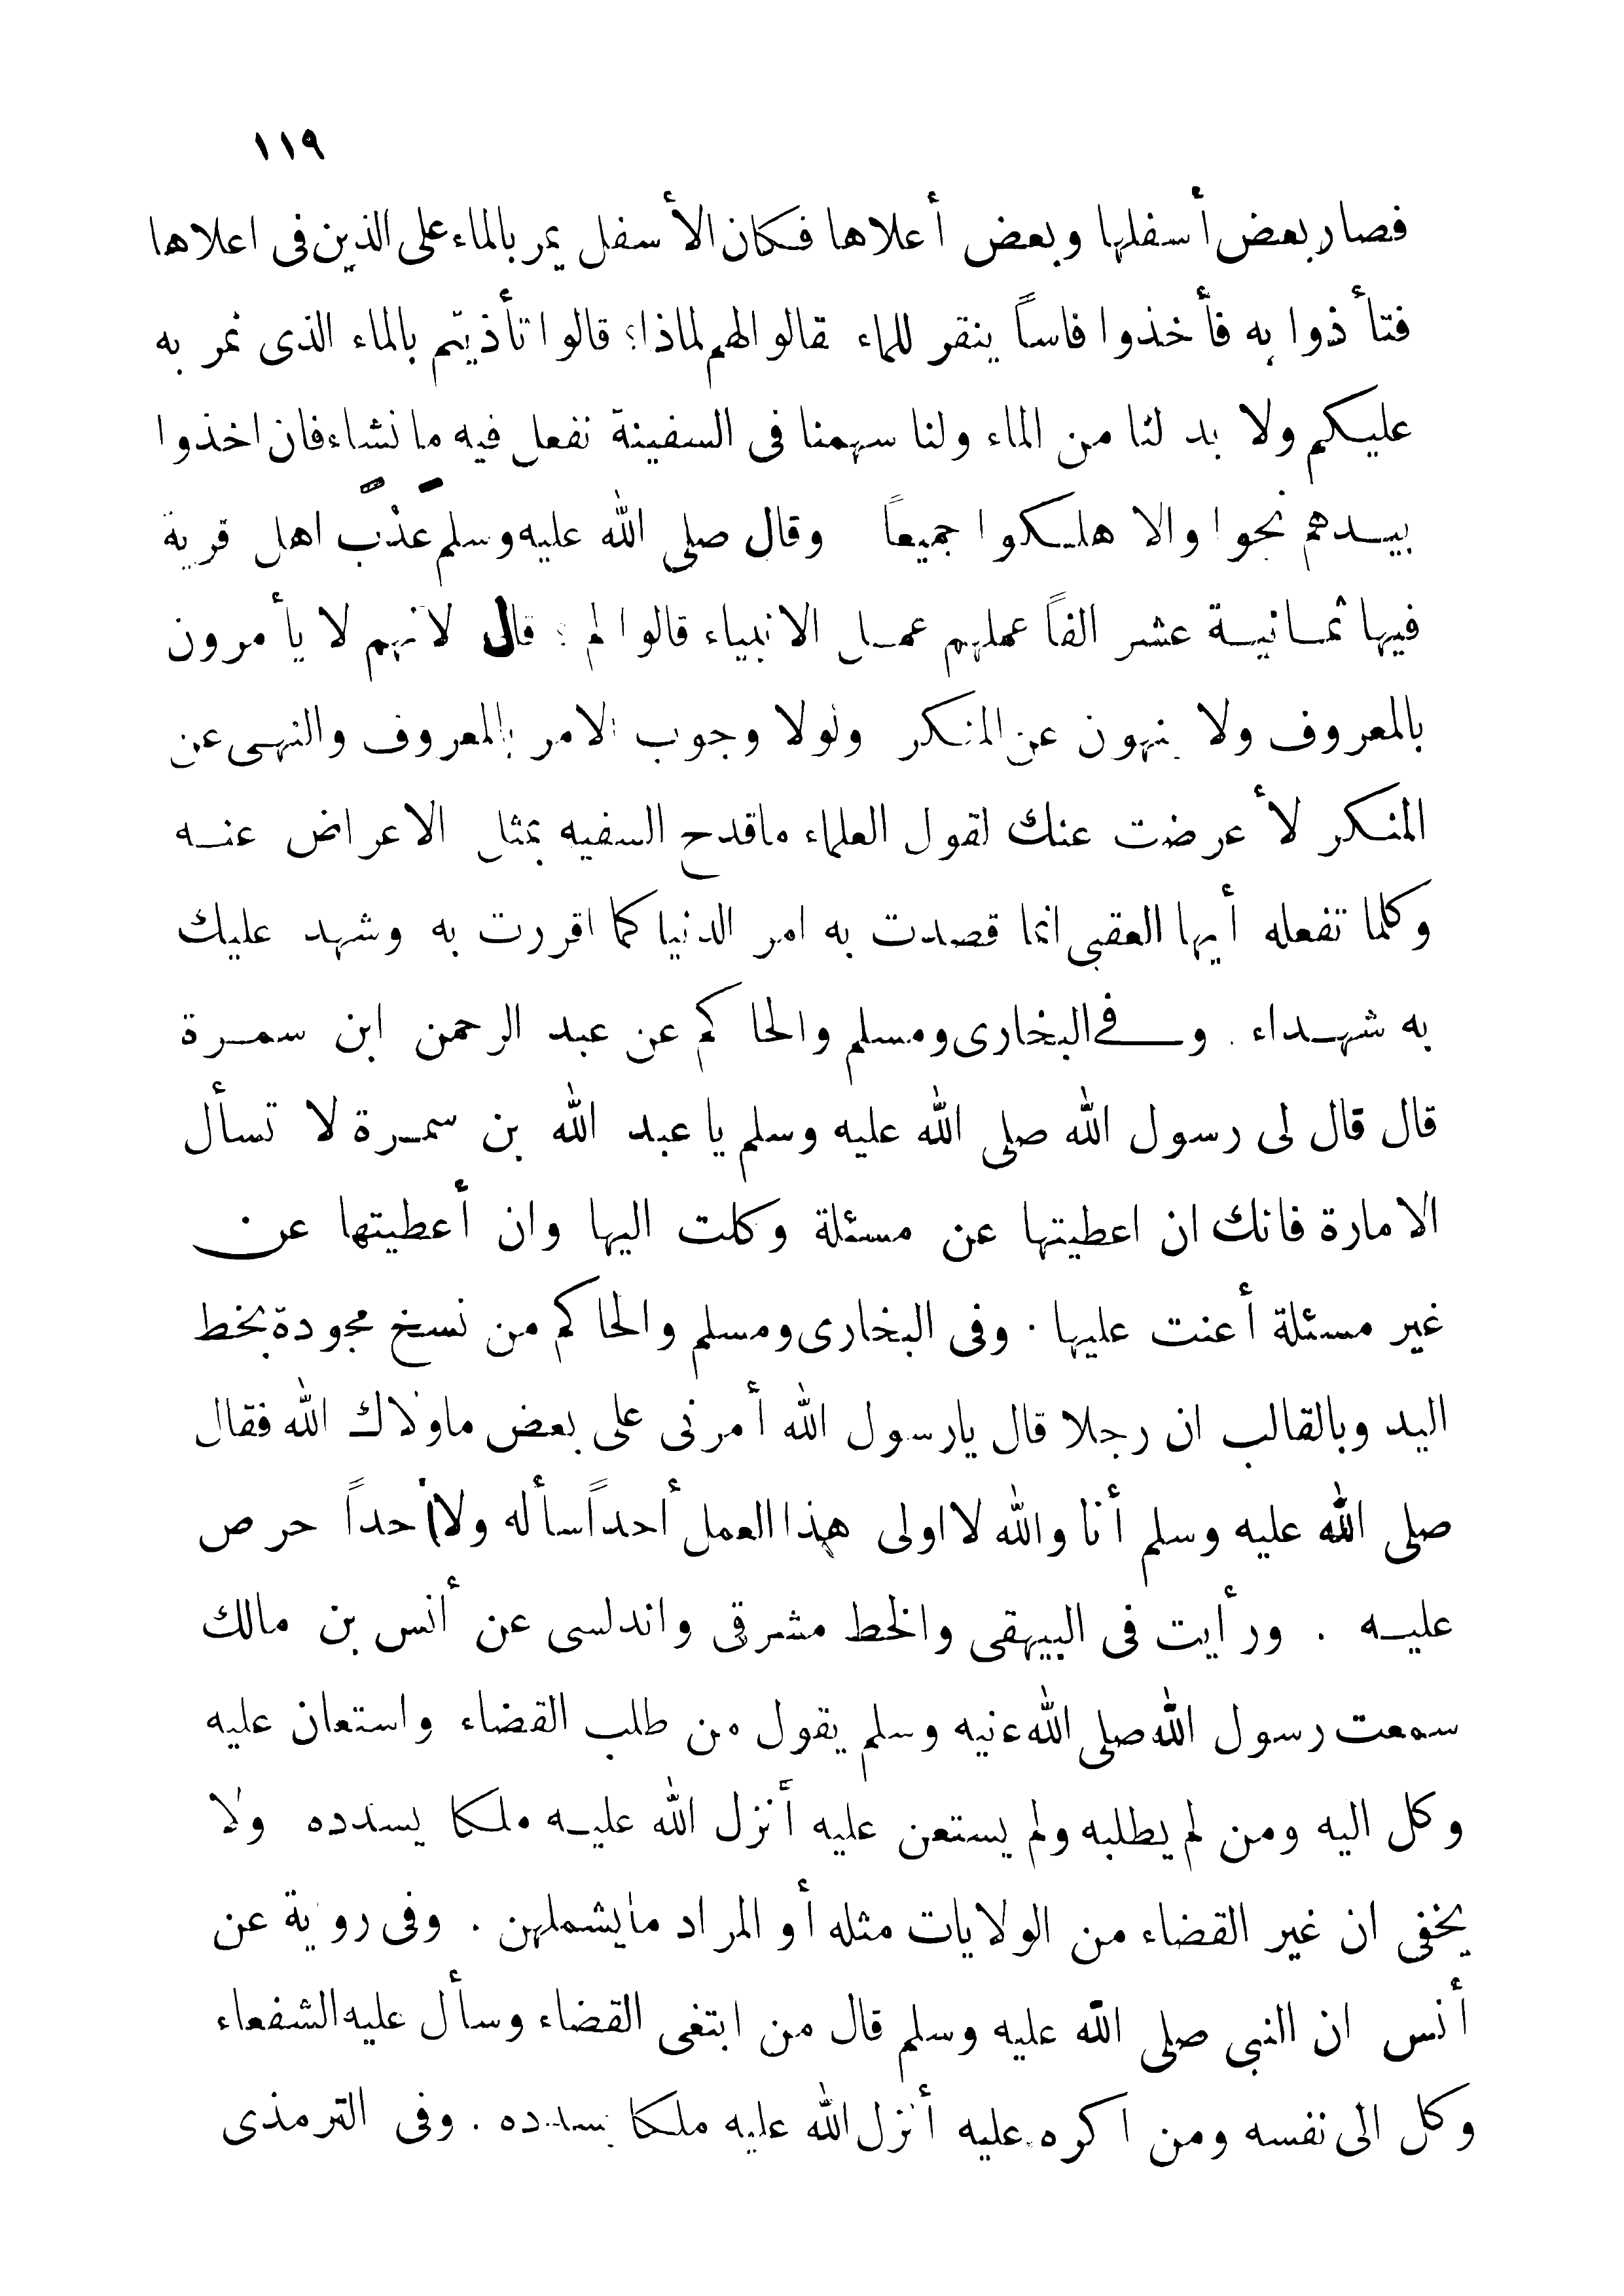 ١١٩
فصار بعض أسفلها وبعض أعلاها فكان الأسفل يمر بالماء على الذين فى اعلاها
فتأذوا به فأخذوا فاساً ينقر للماء فقالوا لهم لماذا؟ قالوا تأذيتم بالماء الذى نمر به
عليكم ولا بد لنا من الماء ولنا سهمنا فى السفينة نفعل فيه ما نشاء فان اخذوا
بيدهم نجوا والا هلكوا جميعاً وقال صلى الله عليه وسلم عذب اهل قرية
فيها ثمانية عشر الفاً عملهم عمل الانبياء قالوا لم ؟ قال لانهم لا يأمرون
بالمعروف ولا ينهون عن المنكر ولولا وجوب الامر بالمعروف والنهى عن
المنكر لأعرضت عنك لقول العلماء ما قدح السفيه بمثل الاعراض عنه
وكلما تفعله أيها العقبى انما قصدت به امر الدنيا كما اقررت به وشهد عليك
به شهداء . وفى البخارى ومسلم والحاكم عن عبد الرحمن ابن سمرة
قال قال لى رسول الله صلى الله عليه وسلم يا عبد الله بن سمرة لا تسأل
الامارة فانك ان اعطيتها عن مسئلة وكلت اليها وان أعطيتها عن
غير مسئلة أعنت عليها . وفى البخارى ومسلم والحاكم من نسخ مجودة بخط
اليد وبالقالب ان رجلا قال يا رسول الله أمرنى على بعض ما ولاك الله فقال
صلى الله عليه وسلم أنا والله لا اولى هذا العمل أحداً سأله ولا أحداً حرص
عليه . ورأيت فى البيهقى والخط مشرقى واندلسى عن أنس بن مالك
سمعت رسول الله صلى الله عليه وسلم يقول من طلب القضاء واستعان عليه
وكل اليه ومن لم يطلبه ولم يستعن عليه أنزل الله عليه ملكا يسدده ولا
يخفى ان غير القضاء من الولايات مثله أو المراد ما يشملهن . وفى رواية عن
أنس ان النبى صلى الله عليه وسلم قال من ابتغى القضاء وسأل عليه الشفعاء
وكل الى نفسه ومن اكره عليه أنزل الله عليه ملكا يسدده . وفى الترمذى